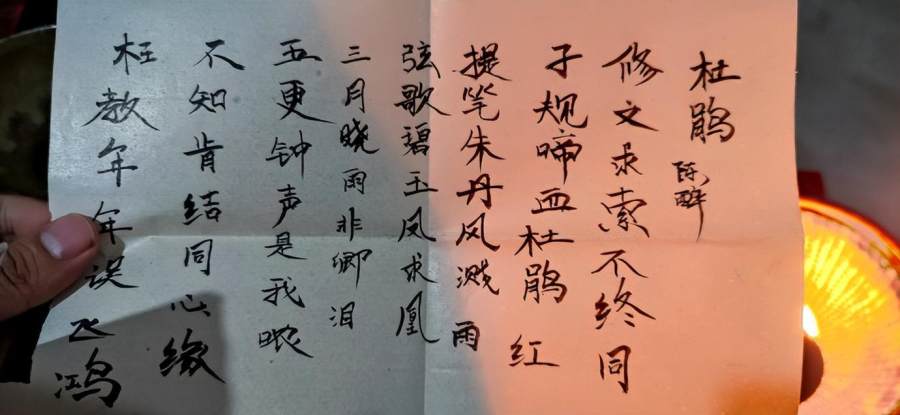 杜鹃
陈醉
修文求索不终同
子规啼血杜鹃红
提笔朱丹风溅雨
弦歌碧玉凤求凰
三月晓雨非卿泪
五更钟声是我哝
不知肯结同心缘
枉教年年误飞鸿